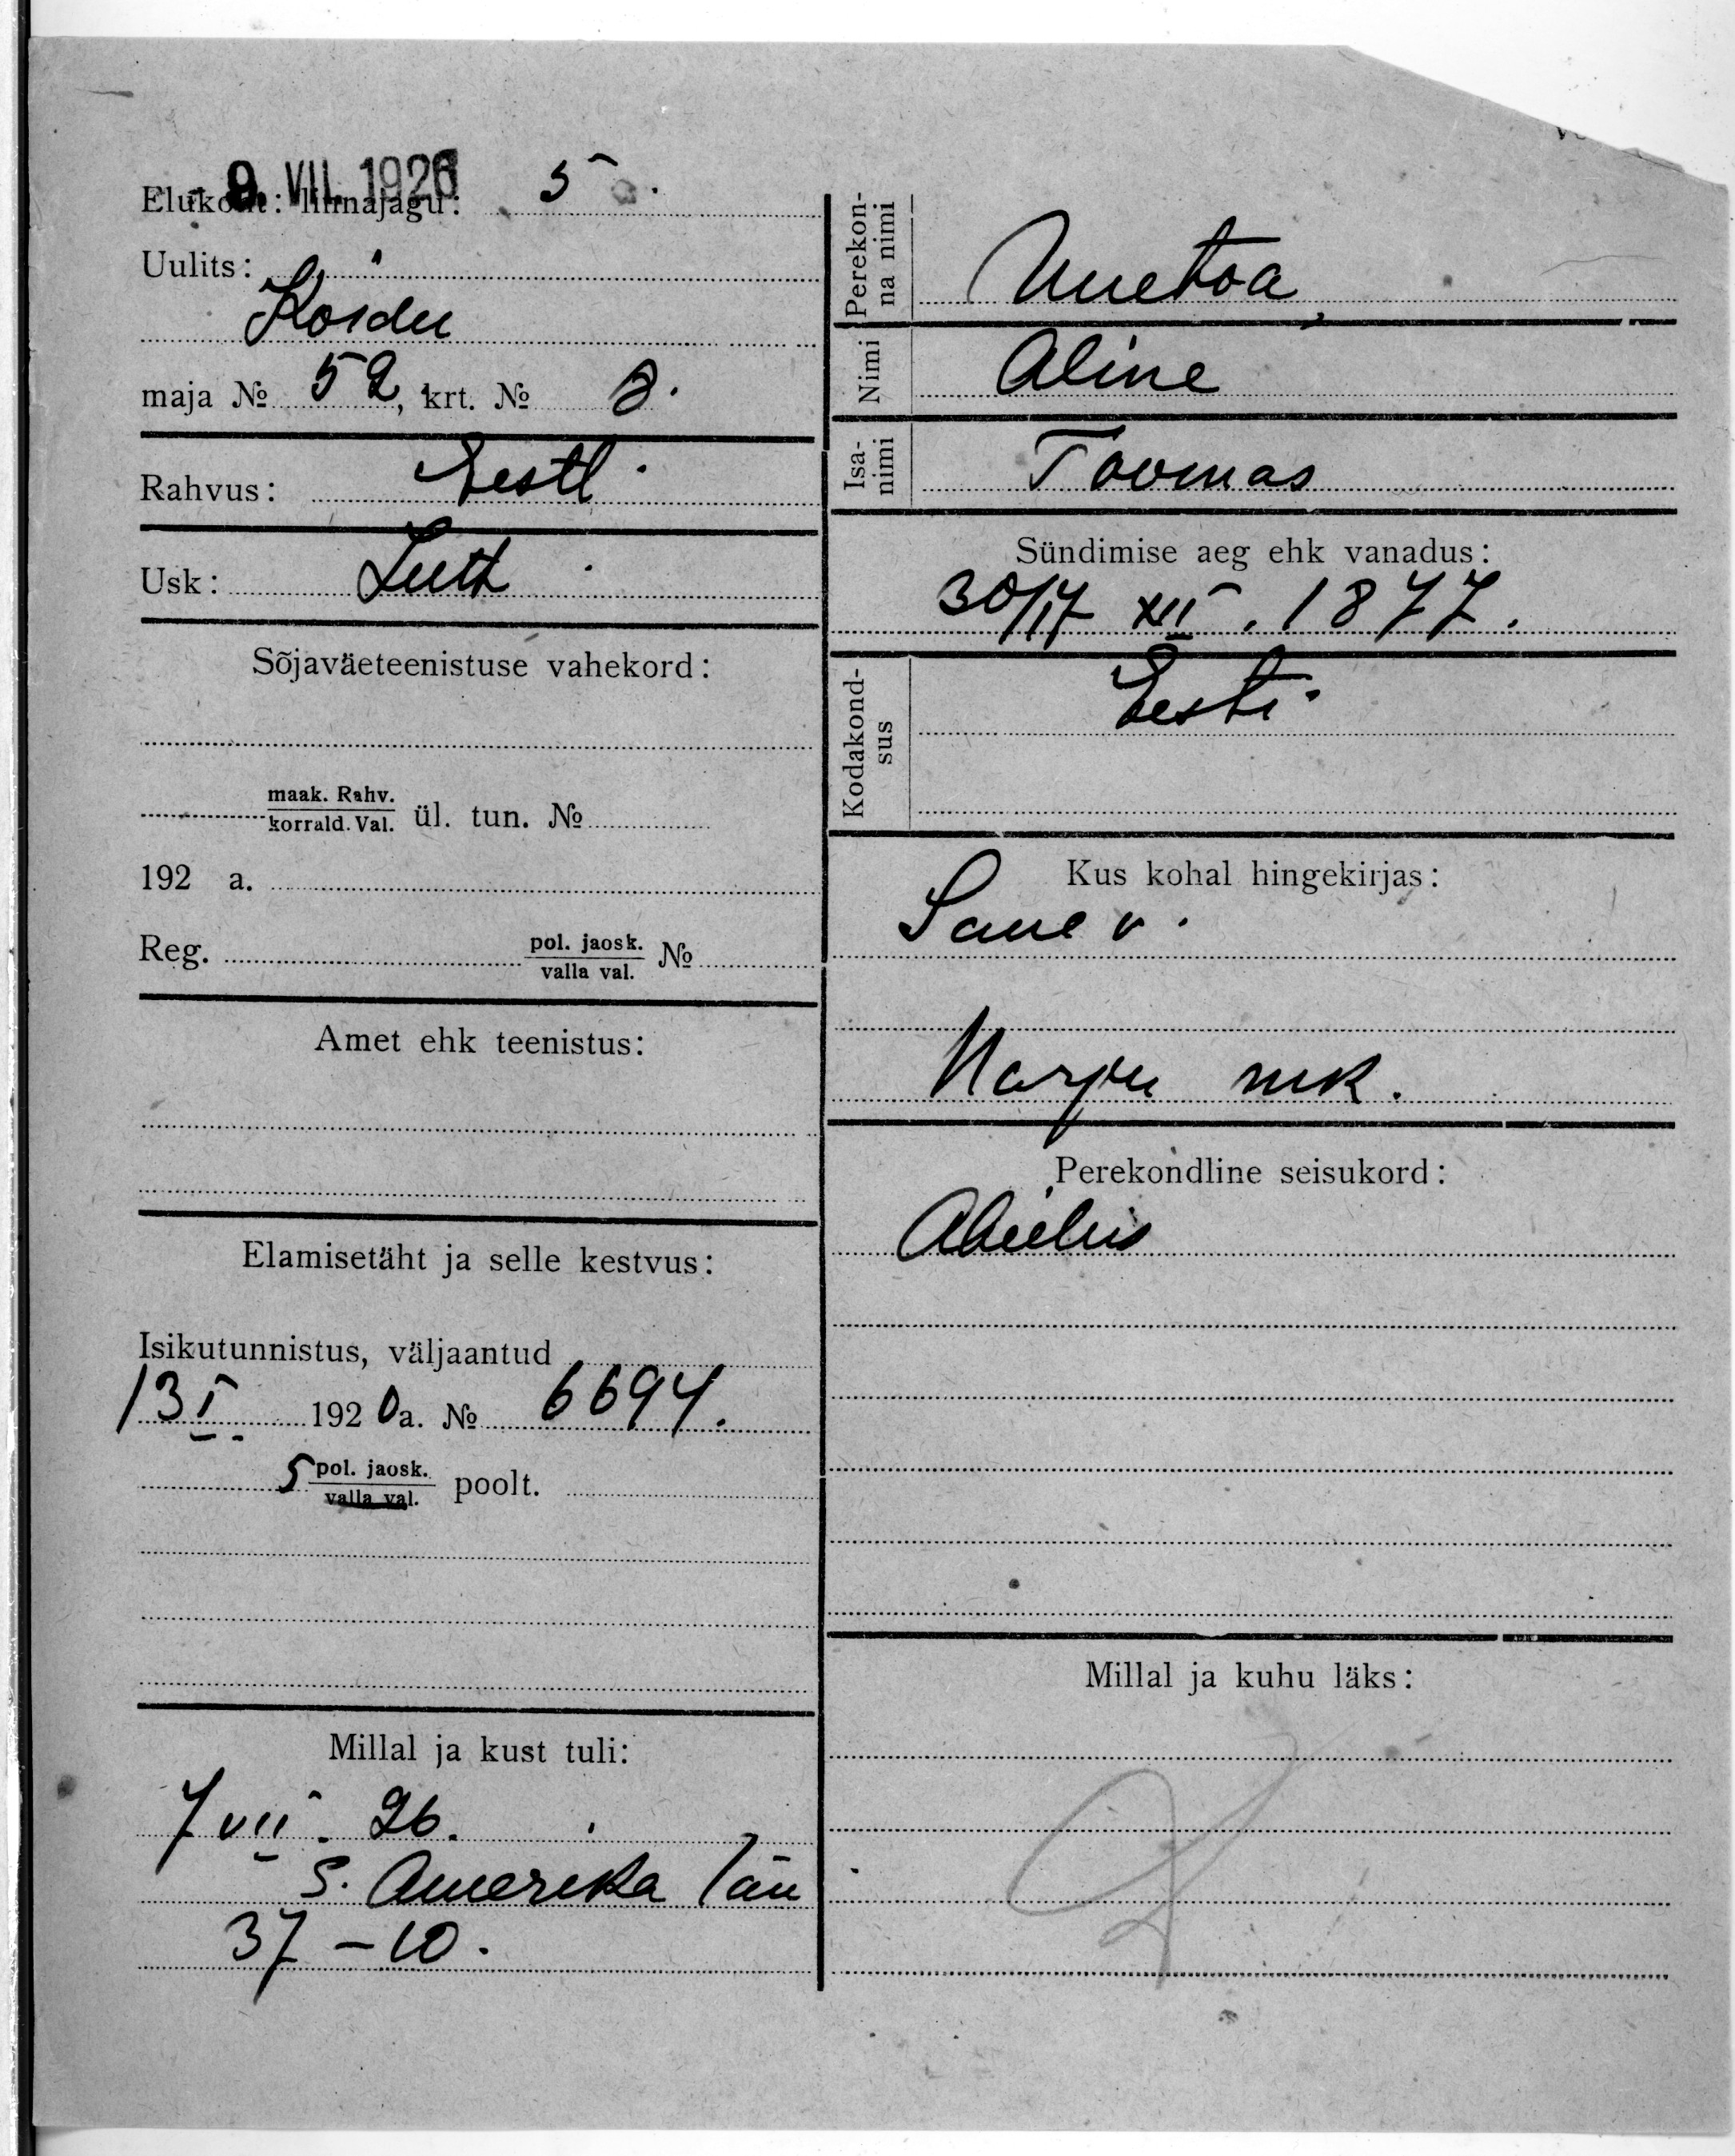 9. VII. 1926
Elukoht: linnajagu: 5.
Uulits:
Koidu
maja № 52, krt. № 2.
Rahvus: Eesti
Usk: Luth
Sõjaväeteenistuse vahekord:
maak. Rahv.
korrald. Val. ül. tun. №
192 a.
Reg. pol. jaosk.
valla val. №
Amet ehk teenistus:
Elamisetäht ja selle kestvus:
Isikutunnistus, väljaantud
13 I 1920 a. № 6694.
5 pol. jaosk.
valla val. poolt.
Millal ja kust tuli:
7 VII. 26.
S. Ameerika tän
37 – 10.
Perekon-
na nimi
Uuetoa,
Nimi
Aline
Isa-
nimi
Toomas
Sündimise aeg ehk vanadus:
30/17 XII. 1877.
Kodakond-
sus
Eesti
Kus kohal hingekirjas:
Saue v.
Harju mk.
Perekondline seisukord:
Abielus
Millal ja kuhu läks: